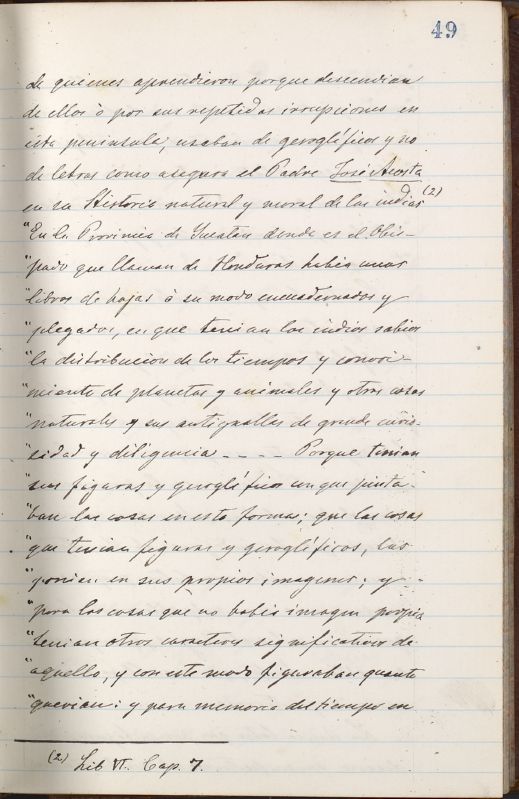 49
de quienes aprendieron porque descendian
de ellos ò por sus repetidas irrupciones en
esta peninsula, usaban de geroglíficos y no
de letras como asegura el Padre José Acosta
en su Historia natural y moral de las indias (2)
"En la Provincia de Yucatan donde es el Obis-
"pado que llaman de Honduras habia unos
"libros de hojas à su modo encuadernados y
"plegados, en que tenian los indios sabios
"la distribucion de los tiempos y conoci-
"miento de planetas y animales y otras cosas
"naturales y sus antiguallas de grande curio-
"sidad y diligencia - - - - Porque tenian
"sus figuras y geroglíficos en que pinta-
"ban las cosas en esta forma; que las cosas
"que tenian figuras y geroglíficos, las
"ponian en sus propias imagenes; y -
"para las cosas que no habia imagen propia
"tenian otros caracteres significativos de
"aquello, y con este modo figuraban quanto
"querian: y para memoria del tiempo en
(2) Lib VI. Cap. 7.